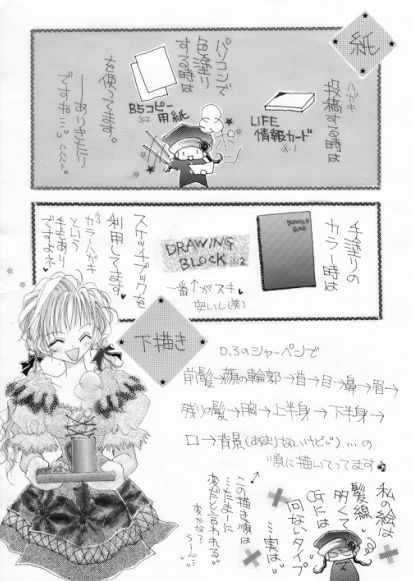 紙
ハガキ
投稿する時は
LIFE
情報カード
※1
パソコンで
色塗り
する時は
B5コピー
用紙
※2
を使ってます。
ーありきたり
ですや…
ハハハ。
手塗りの
カラー時は
DRAWING
BLOCK
DRAWING
BLOCK ※2
一番↑がスキ
安いし(笑)
スケッチブックを
利用してます。
カラーハガキ
という
手もあり
ですよネ
下描き
0.3のシャーペンで
前髪→顔の輪郭→首→目→鼻→眉→
残りの髪→胸→上半身→下半身→
口→背景(あまりないけど)…の
順に描いてってます♪
この描き順は
変だと言われる。
変かな?
うーん…
私の絵は
髪線
多くて
CGには
向ないタイプ
ミ実は。